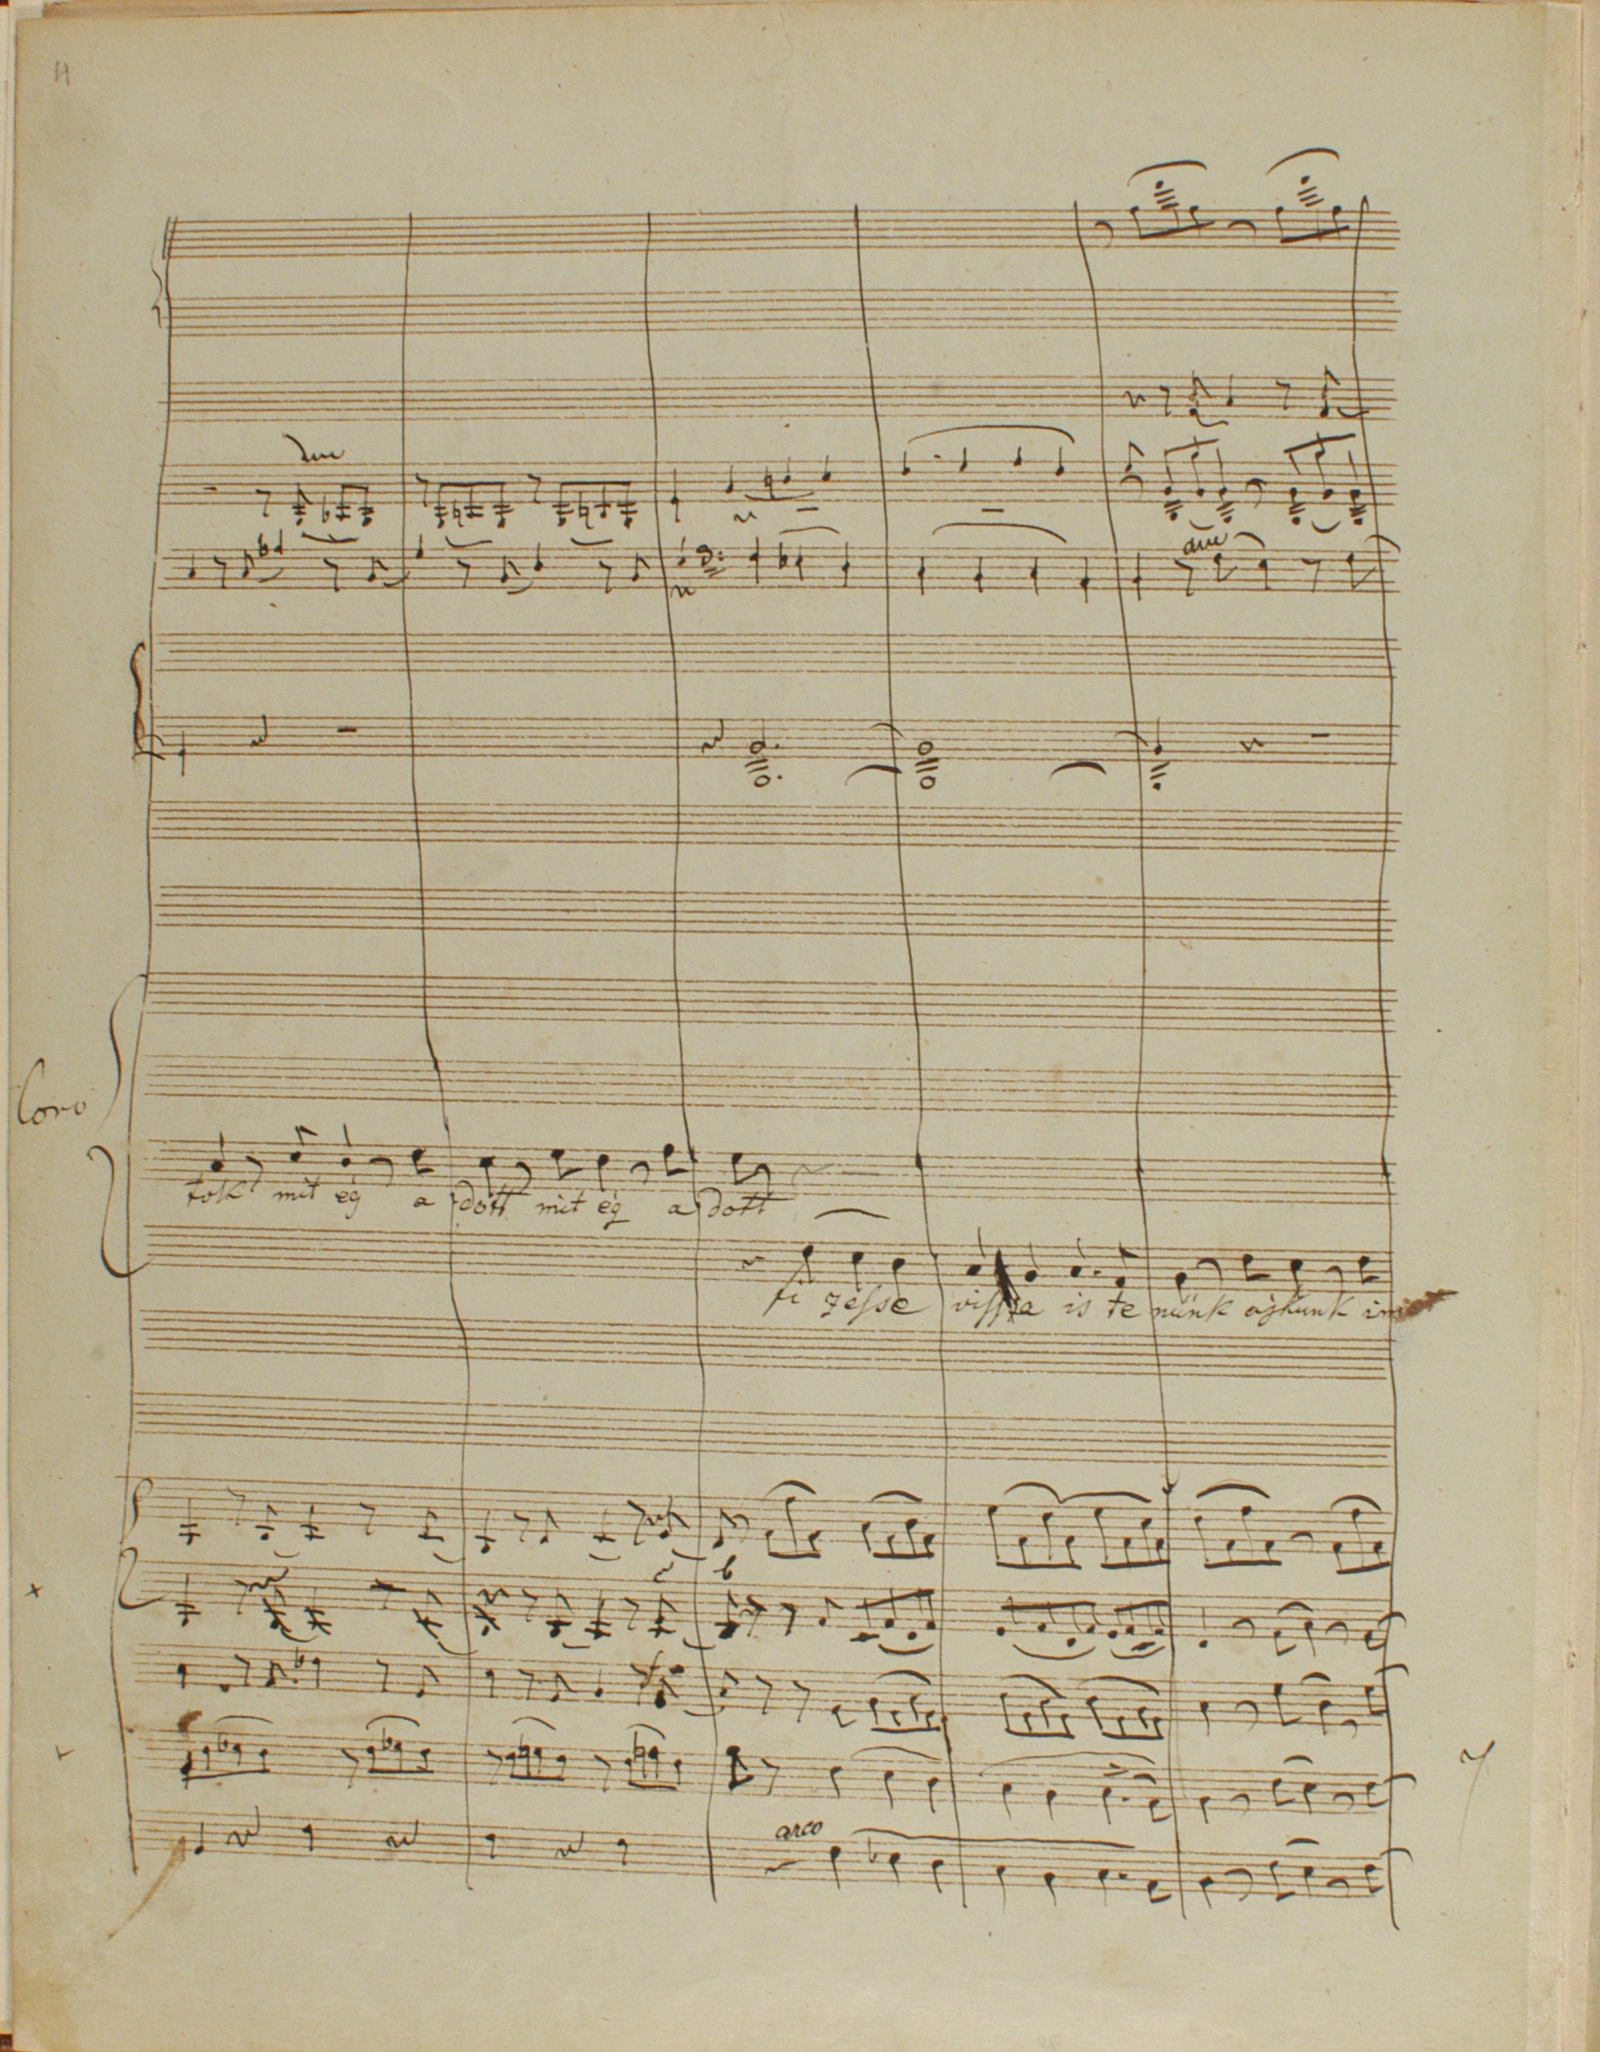 due
due
Coro
tolk mit ég a dott mit ég a dott
fi zesse vissza is te nünk ajkunk im
arco
7